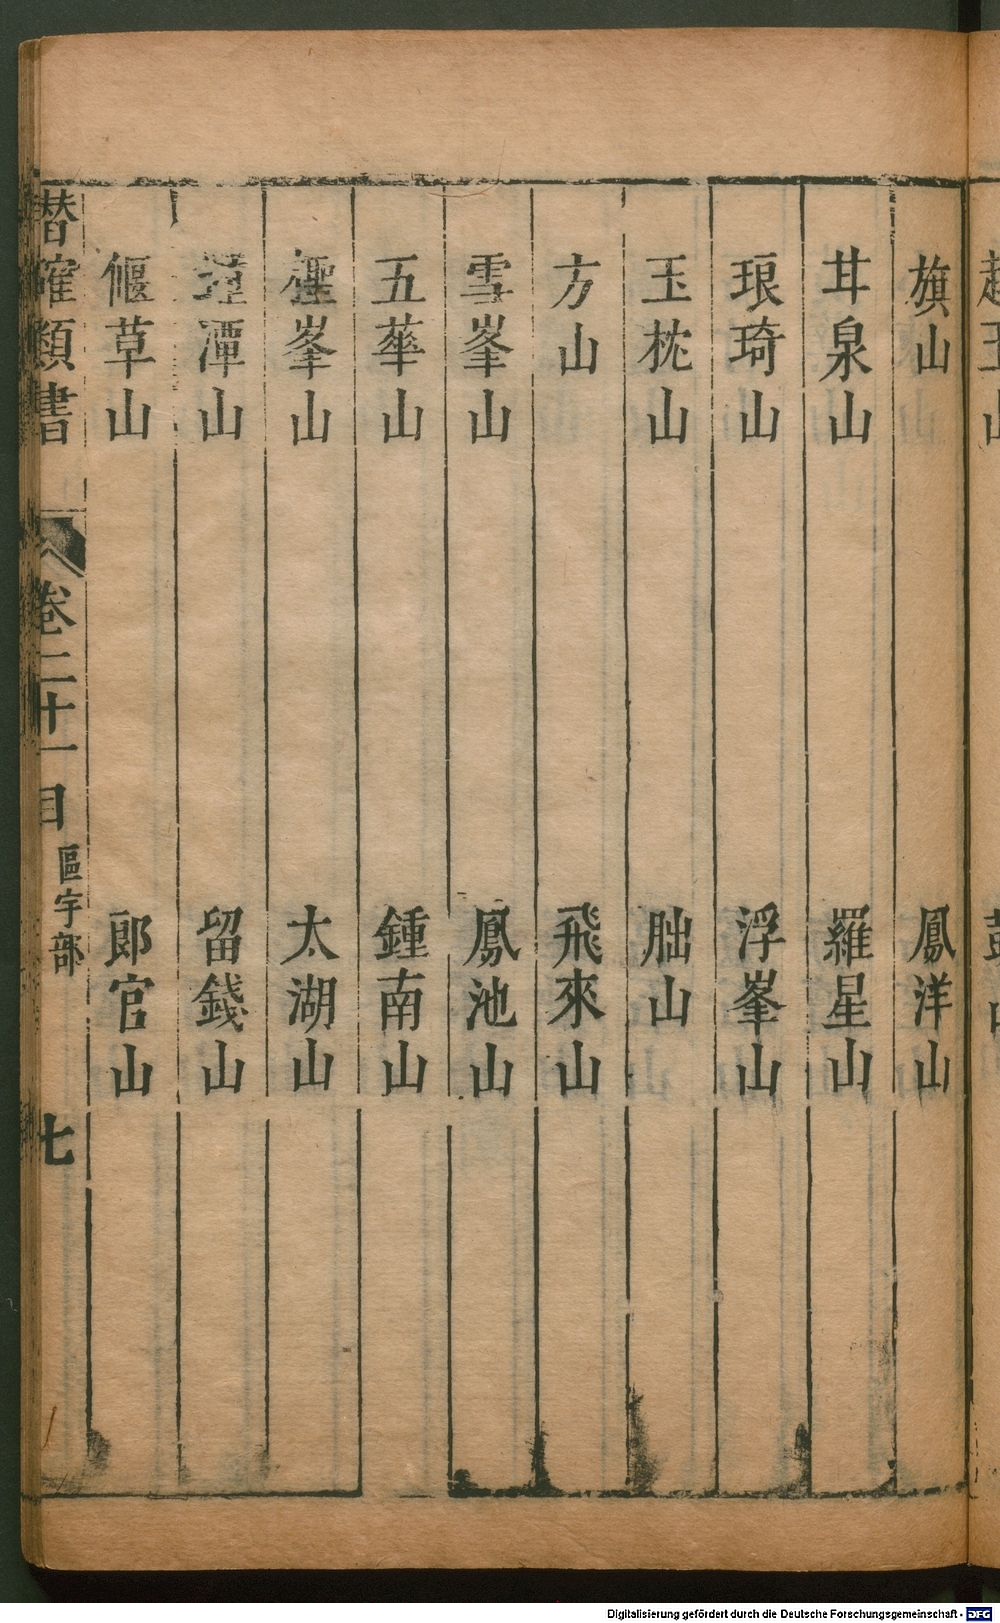 旗山 鳳洋山
甘泉山 羅星山
琅琦山 浮峯山
玉枕山 朏山
方山 飛來山
雪峯山 鳳池山
五華山 鍾南山
靈峯山 太湖山
潭山 留錢山
偃草山 郎官山
潛確類書 卷二十一目 區宇部 七
Digitalisierung gefördert durch die Deutsche Forschungsgemeinschaft - DFG